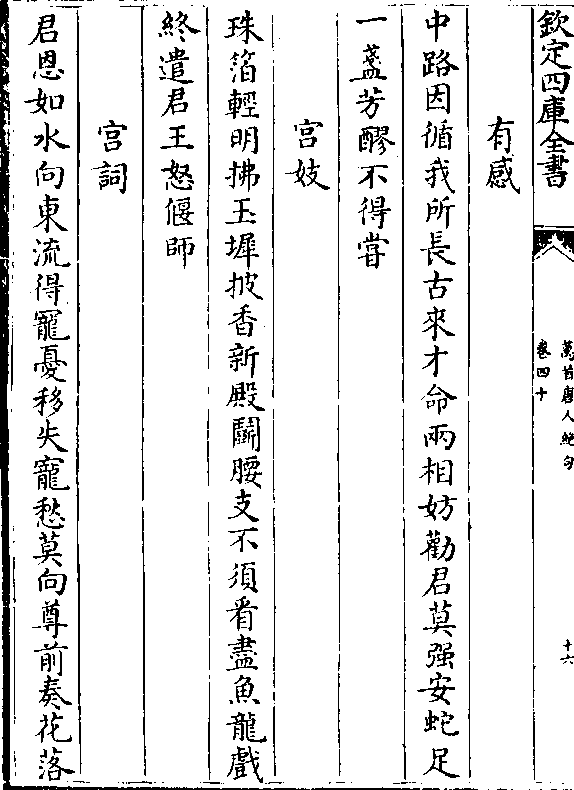 欽定四庫全書
萬首唐人絶句
卷四十
十六
有感
中路因循我所長古來才命兩相妨勸君莫强安蛇足
一盞芳醪不得嘗
宫妓
珠箔輕明拂玉墀披香新殿鬭腰支不須看盡魚龍戲
終遣君王怒偃師
宫詞
君恩如水向東流得寵憂移失寵愁莫向尊前奏花落